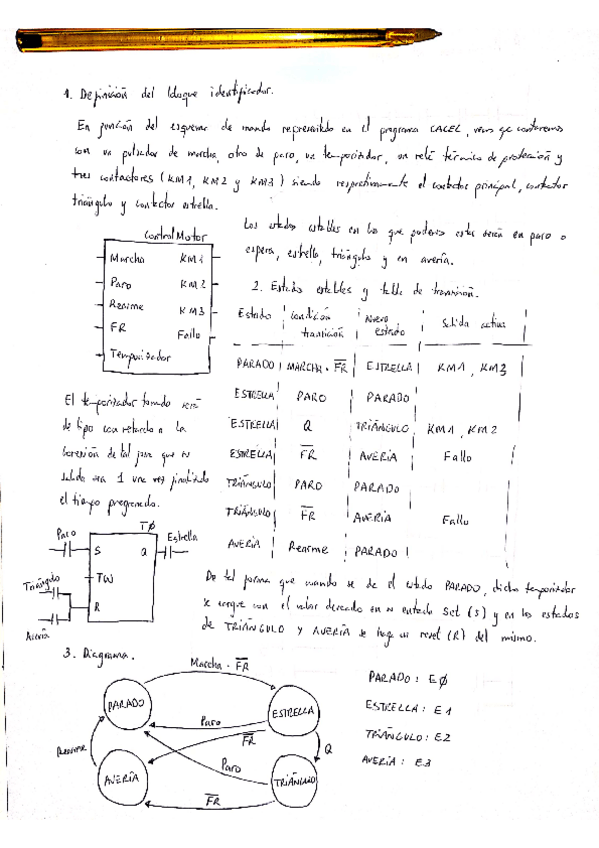 1. Definición del bloque identificador.
En función del esquema de mando representado en el programa CADEL, vemos que contaremos
con un pulsador de marcha, otro de paro, un temporizador, un relé térmico de protección y
tres contactores (KM1, KM2 y KM3) siendo respectivamente el contactor principal, contactor
triángulo y contactor estrella.
Los estados estables en los que podemos estar serán en paro o
espera, estrella, triángulo y en avería.
Control Motor
Marcha KM1
Paro KM2
Rearme KM3
FR Fallo
Temporizador
2. Estados estables y tabla de transición.
Estado condición transición nuevo estado Salida activa
PARADO MARCHA · F̅R̅ ESTRELLA KM1, KM3
ESTRELLA PARO PARADO
ESTRELLA Q TRIÁNGULO KM1, KM2
ESTRELLA F̅R̅ AVERÍA Fallo
TRIÁNGULO PARO PARADO
TRIÁNGULO F̅R̅ AVERÍA Fallo
AVERÍA Rearme PARADO
El temporizador tomado
de tipo con retardo a la
conexión de tal forma que su
salida sea 1 una vez finalizado
el tiempo programado.
TØ
Paro S Q Estrella
Triángulo TW
R
Avería
De tal forma que cuando se de el estado PARADO, dicho temporizador
se cargue con el valor deseado en su entrada Set (S) y en los estados
de TRIÁNGULO y AVERÍA se haga un reset (R) del mismo.
3. Diagrama.
Marcha · F̅R̅
PARADO
ESTRELLA
Paro
F̅R̅
Rearme
Q
Paro
AVERÍA
TRIÁNGULO
F̅R̅
PARADO: EØ
ESTRELLA: E1
TRIÁNGULO: E2
AVERÍA: E3